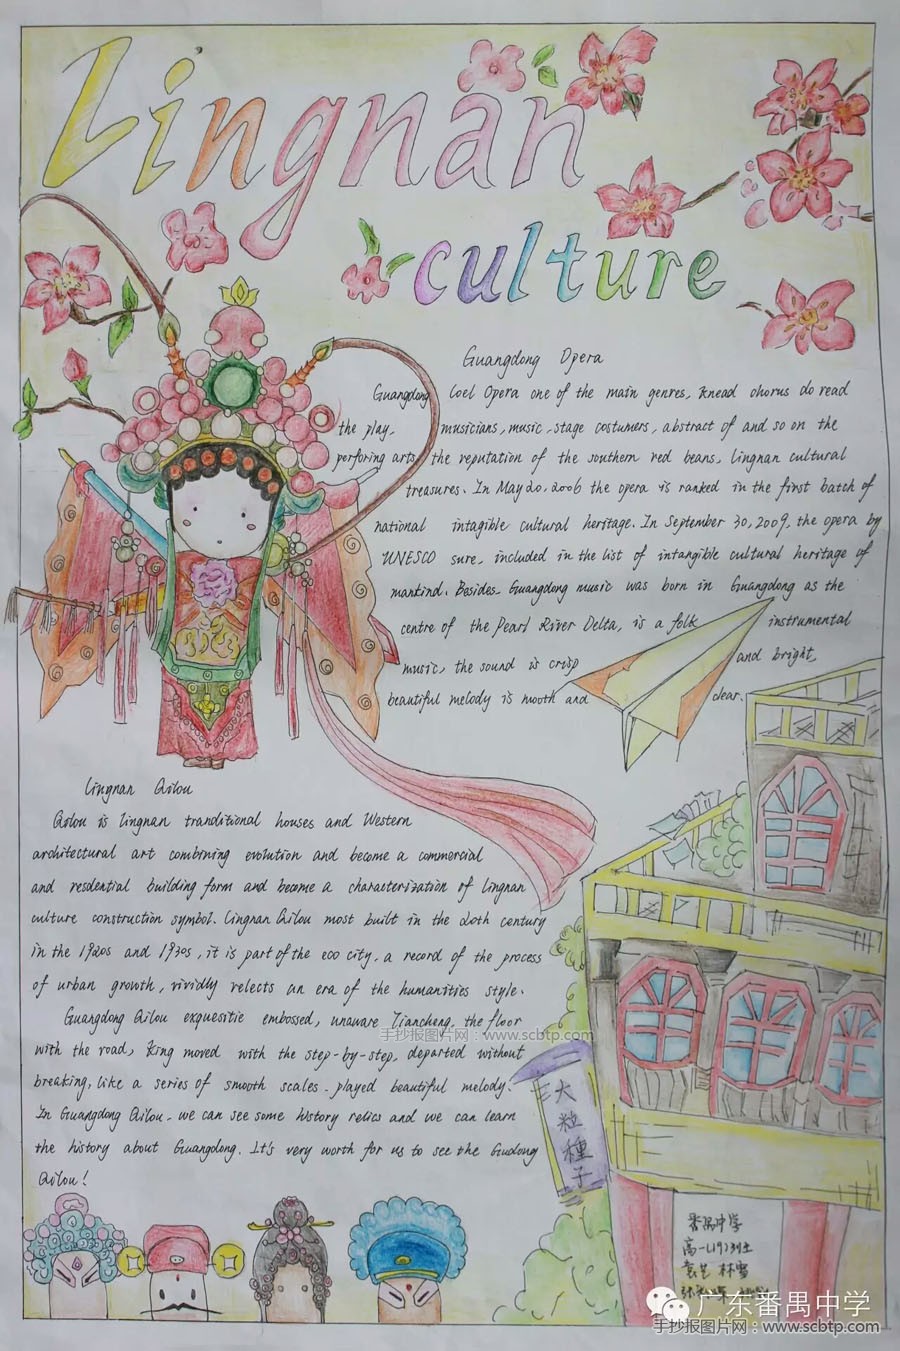 Lingnan
culture
Guangdong Opera
Guangdong Loel Opera one of the main genres, knead chorus do read
the play, musicians, music, stage costumers, abstract of and so on the
perforing arts, the reputation of the southern red beans, Lingnan cultural
treasures. In May 20, 2006 the opera is ranked in the first batch of
national intagible cultural heritage. In September 30, 2009, the opera by
UNESCO sure, included in the list of intangible cultural heritage of
mankind. Besides, Guangdong music was born in Guangdong as the
centre of the Pearl River Delta, is a folk instrumental
music, the sound is crisp and bright,
beautiful melody is mooth and clear.
Lingnan Qilou
Qilou is Lingnan tranditional houses and Western
architectural art combining evolution and become a commercial
and resdential building form and become a characterization of Lingnan
culture construction symbol. Lingnan Qilou most built in the 20th century
in the 1920s and 1930s, it is part of the eco city, a record of the process
of urban growth, vividly relects an era of the humanities style.
Guangdong Qilou exquesitie embossed, unaware Liancheng, the floor
with the road, King moved with the step-by-step, departed without
breaking, like a series of smooth scales, played beautiful melody.
In Guangdong Qilou, we can see some history relics and we can learn
the history about Guangdong. It's very worth for us to see the Gudong
Qilou!
手抄报图片网：www.scbtp.com
大粒種子
番禺中学
高一(19)班
袁艺 林雪
广东番禺中学
手抄报图片网：www.scbtp.com